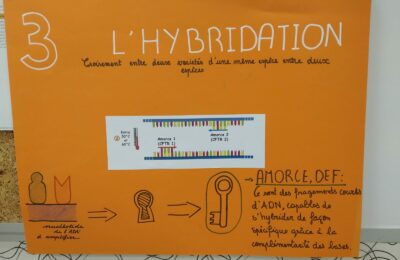 3 L'HYBRIDATION
Croisement entre deux variétés d'une même espère entre deux
espèces
②
Entre
50°C
et
60°C
Amorce 1
(CFTR 1)
Amorce 2
(CFTR 2)
AMORCE, DEF:
Ce sont des fragments courts
d'ADN, capables de
s'hybrider de façon
spécifique grâce à la
complémentarité des bases.
de l'ADN
à amplifier